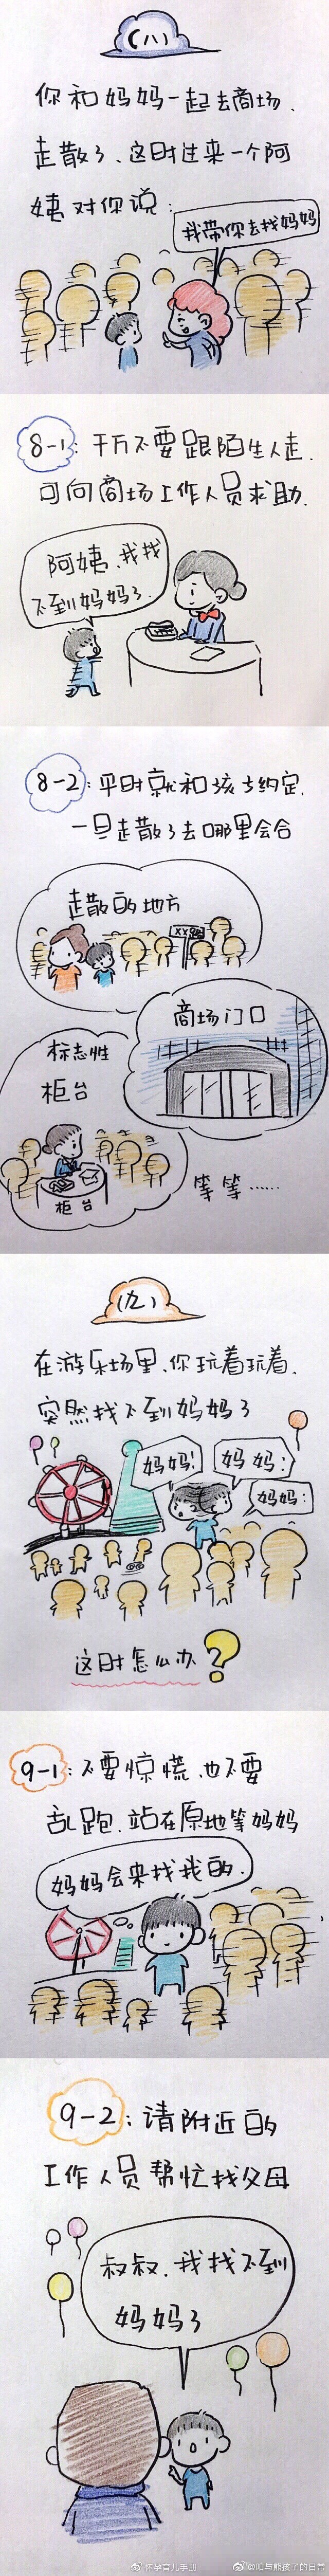 (八)
你和妈妈一起去商场.
走散了、这时过来一个阿
姨对你说:
我带你去找妈妈
8-1:千万不要跟陌生人走.
可向商场工作人员求助.
阿姨、我找
不到妈妈了.
8-2:平时就和孩子约定.
一旦走散了去哪里会合
走散的地方
商场门口
标志性
柜台
柜台
等等……
(九)
在游乐场里、你玩着玩着.
突然找不到妈妈了
妈妈!
妈妈:
妈妈:
这时怎么办?
9-1:不要惊慌、也不要
乱跑.站在原地等妈妈
妈妈会来找我的.
9-2:请附近的
工作人员帮忙找父母
叔叔.我找不到
妈妈了
怀孕育儿手册
@暗与熊孩子的日常